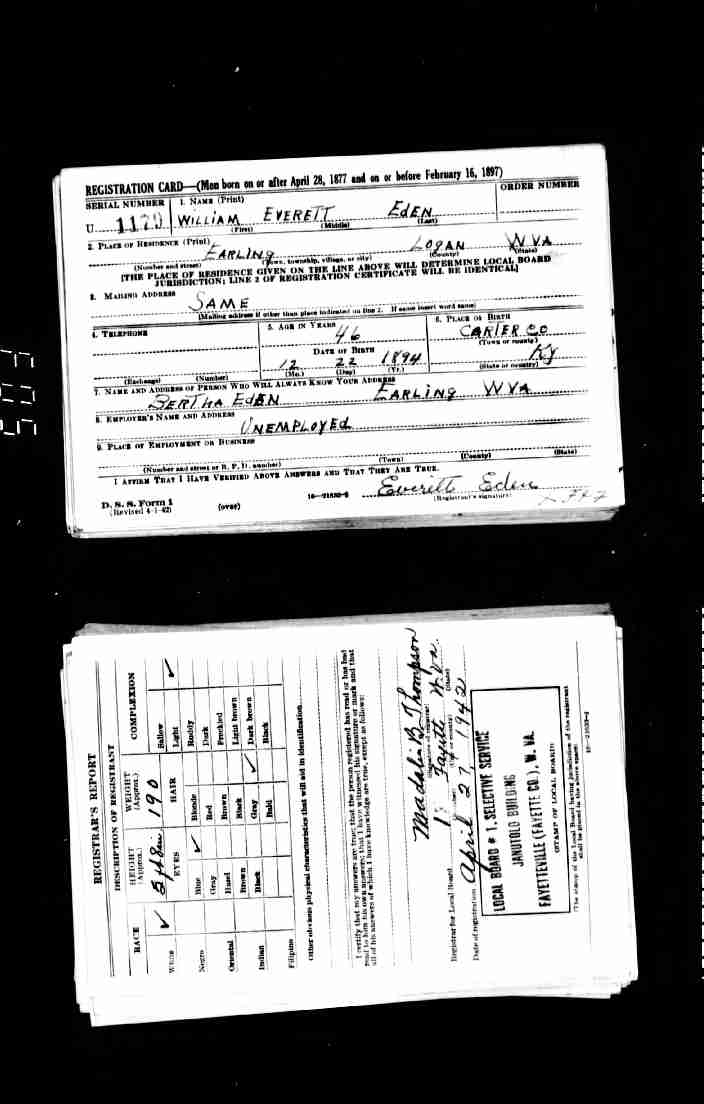 REGISTRATION CARD—(Men born on or after April 28, 1877 and on or before February 16, 1897)
SERIAL NUMBER 1. NAME (Print) ORDER NUMBER
U 1179 WILLIAM EVERETT EDEN
(First) (Middle) (Last)
2. PLACE OF RESIDENCE (Print)
EARLING LOGAN W VA
(Number and street) (Town, township, village, or city) (County) (State)
[THE PLACE OF RESIDENCE GIVEN ON THE LINE ABOVE WILL DETERMINE LOCAL BOARD
JURISDICTION; LINE 2 OF REGISTRATION CERTIFICATE WILL BE IDENTICAL]
3. MAILING ADDRESS
SAME
[Mailing address if other than place indicated on line 2. If same insert word same]
4. TELEPHONE 5. AGE IN YEARS 6. PLACE OF BIRTH
46 CARTER CO
DATE OF BIRTH (Town or county)
12 22 1894 KY
(Exchange) (Number) (Mo.) (Day) (Yr.) (State or country)
7. NAME AND ADDRESS OF PERSON WHO WILL ALWAYS KNOW YOUR ADDRESS
BERTHA EDEN EARLING W VA
8. EMPLOYER'S NAME AND ADDRESS
UNEMPLOYED
9. PLACE OF EMPLOYMENT OR BUSINESS
(Number and street or R. F. D. number) (Town) (County) (State)
I AFFIRM THAT I HAVE VERIFIED ABOVE ANSWERS AND THAT THEY ARE TRUE.
Everett Eden
D. S. S. Form 1 16—21630-2 (Registrant's signature)
(Revised 4-1-42) (over)
REGISTRAR'S REPORT
DESCRIPTION OF REGISTRANT
RACE HEIGHT (Approx.) WEIGHT (Approx.) COMPLEXION
White ✓ 5 ft 8 in 190 Sallow
EYES HAIR Light ✓
Negro Blue ✓ Blonde Ruddy
Gray Red Dark
Oriental Hazel Brown Freckled
Brown Black Light brown
Indian Black Gray ✓ Dark brown
Bald Black
Filipino
Other obvious physical characteristics that will aid in identification
I certify that my answers are true; that the person registered has read or has had
read to him his own answers; that I have witnessed his signature or mark and that
all of his answers of which I have knowledge are true, except as follows:
Madalin B. Thompson
(Signature of registrar)
Registrar for Local Board 1 Fayette W. Va.
(Number) (City or county) (State)
Date of registration April 27, 1942
LOCAL BOARD # 1. SELECTIVE SERVICE
JANUTOLO BUILDING
FAYETTEVILLE (FAYETTE CO.), W. VA.
(STAMP OF LOCAL BOARD)
(The stamp of the Local Board having jurisdiction of the registrant
shall be placed in the above space)